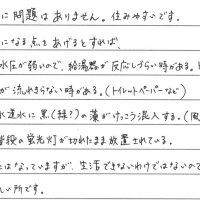 に問題はありません。住みやすいです。
になる点をあげるとすれば、
水圧が弱いので、給湯器が反応しづらい時がある。
が流れきらない時がある。(トイレットペーパーなど)
水道水に黒(緑?)の藻がけっこう混入する。(風
階段の蛍光灯が切れたまま放置されている。
はなっていますが、生活できないわけではないので
しい所です。